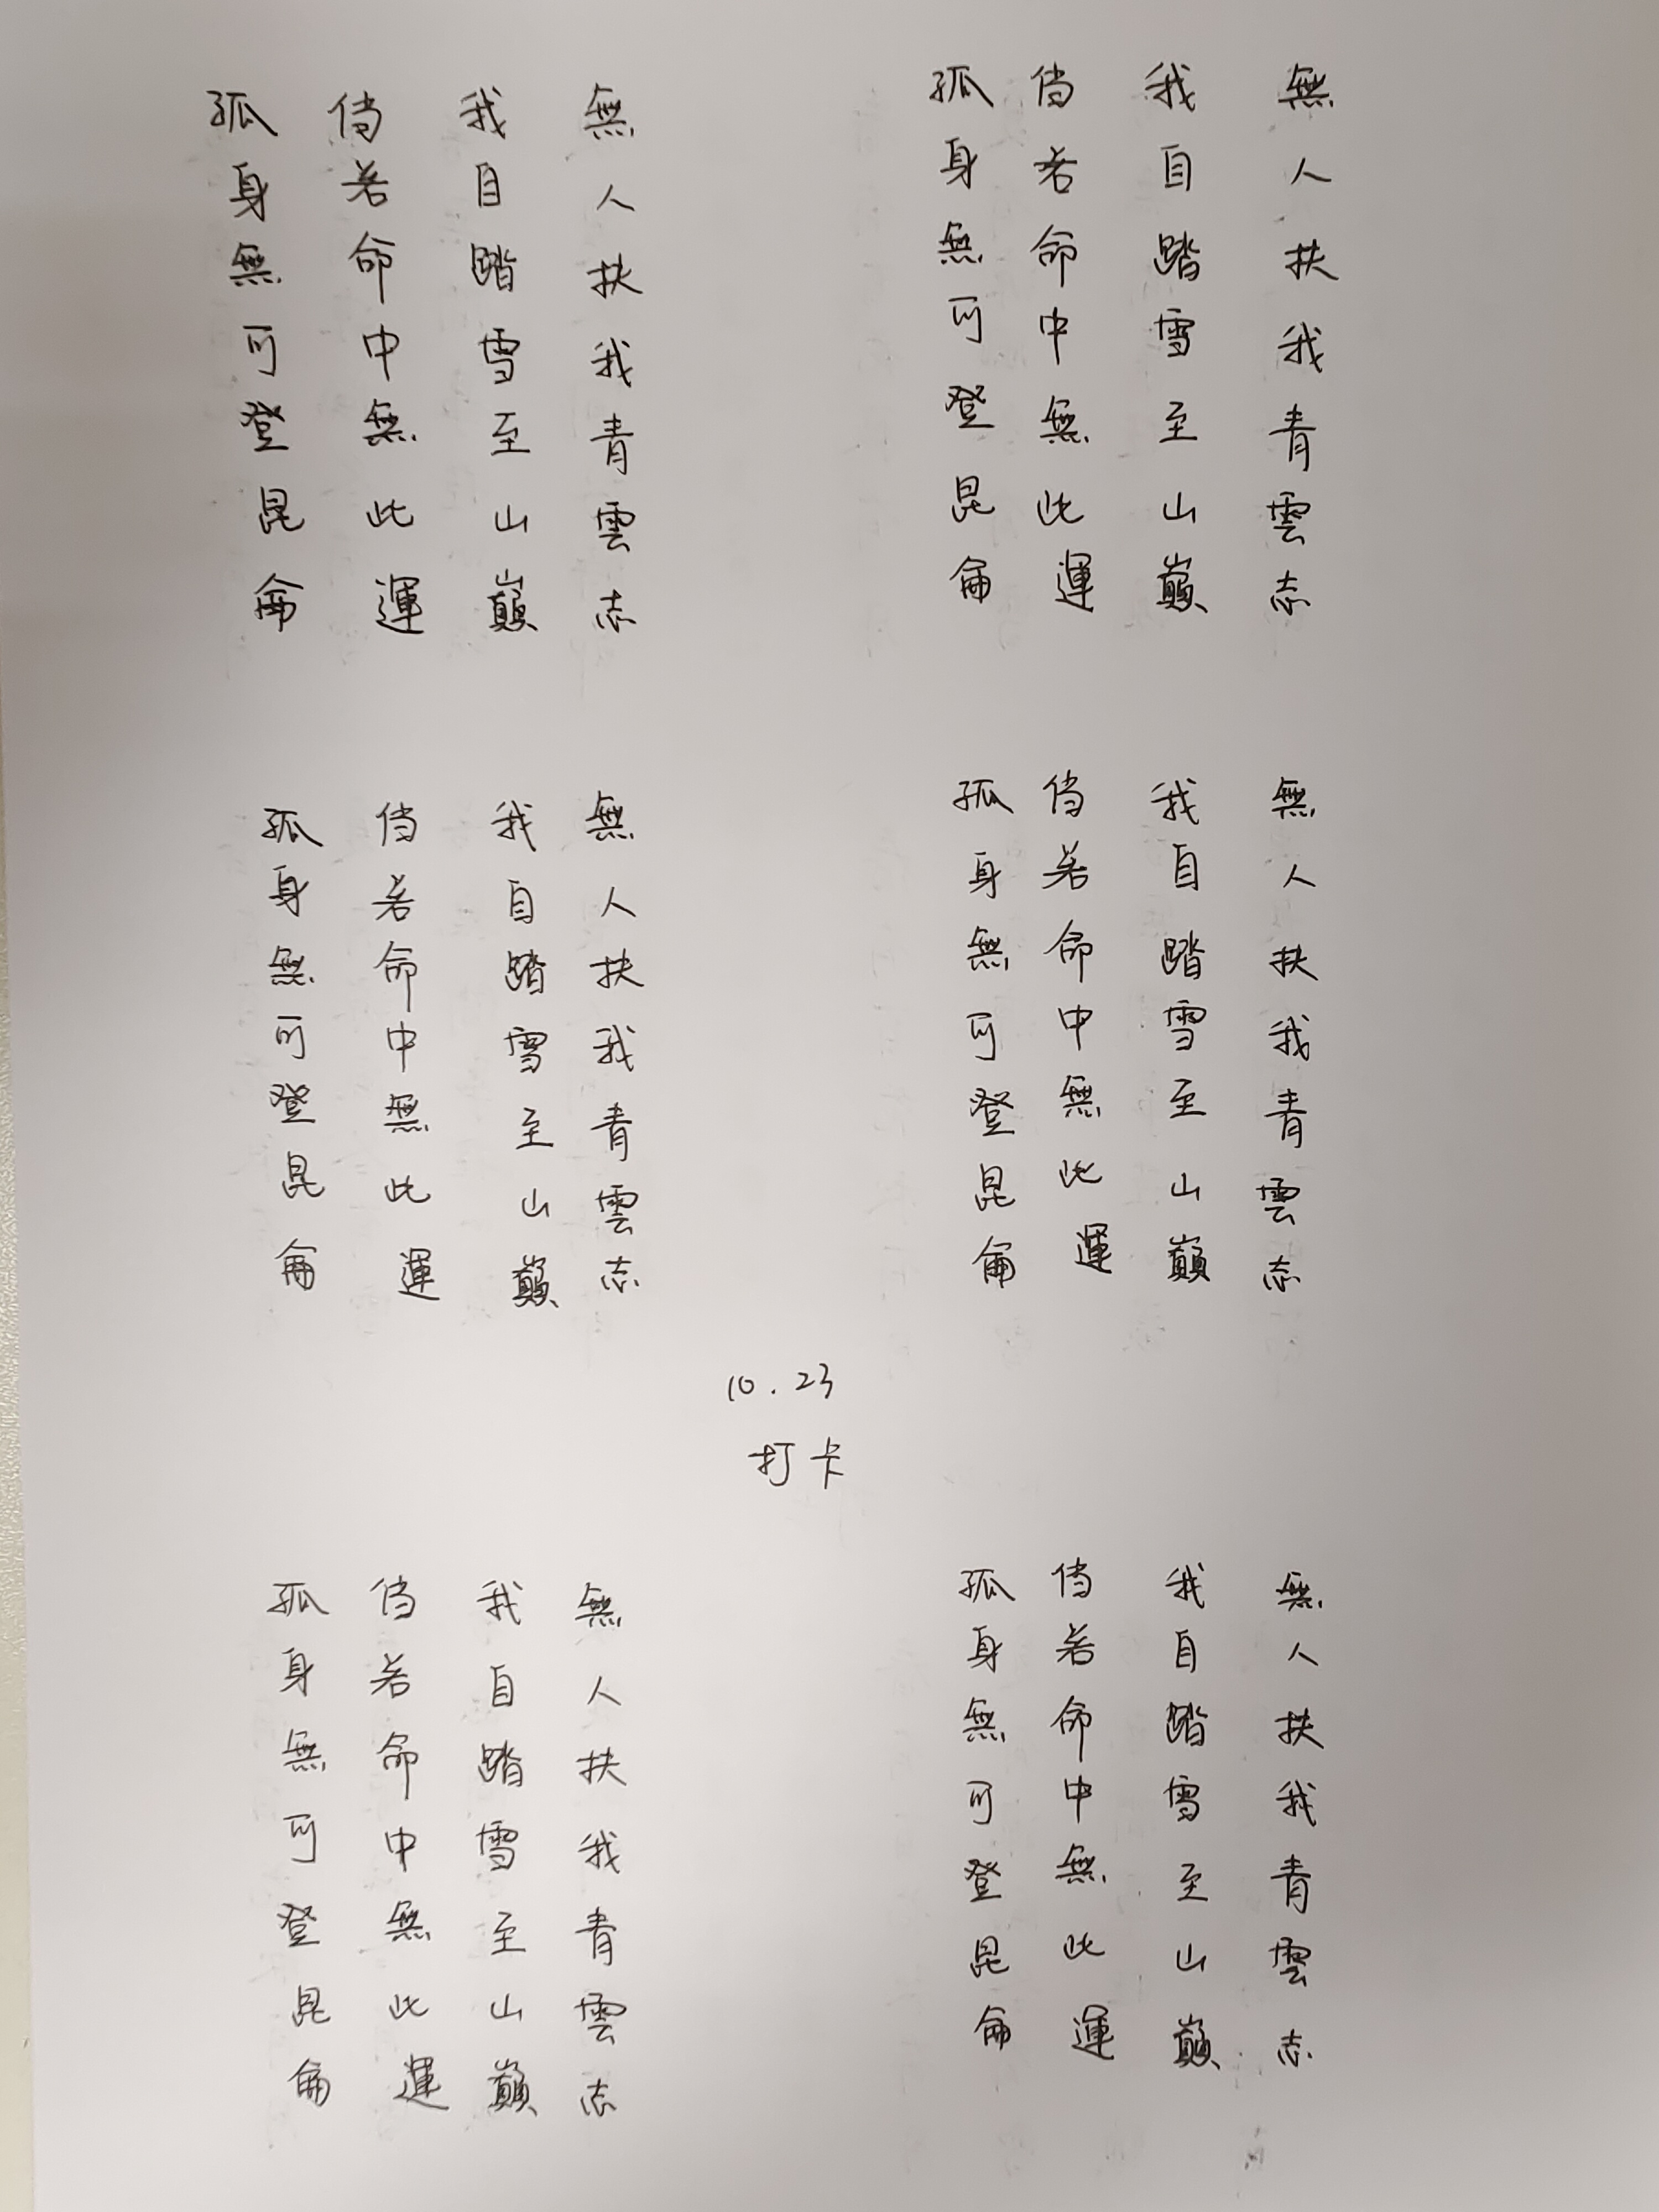 無人扶我青雲志
我自踏雪至山巔
倘若命中無此運
孤身無可登昆侖
無人扶我青雲志
我自踏雪至山巔
倘若命中無此運
孤身無可登昆侖
無人扶我青雲志
我自踏雪至山巔
倘若命中無此運
孤身無可登昆侖
無人扶我青雲志
我自踏雪至山巔
倘若命中無此運
孤身無可登昆侖
10.23
打卡
無人扶我青雲志
我自踏雪至山巔
倘若命中無此運
孤身無可登昆侖
無人扶我青雲志
我自踏雪至山巔
倘若命中無此運
孤身無可登昆侖